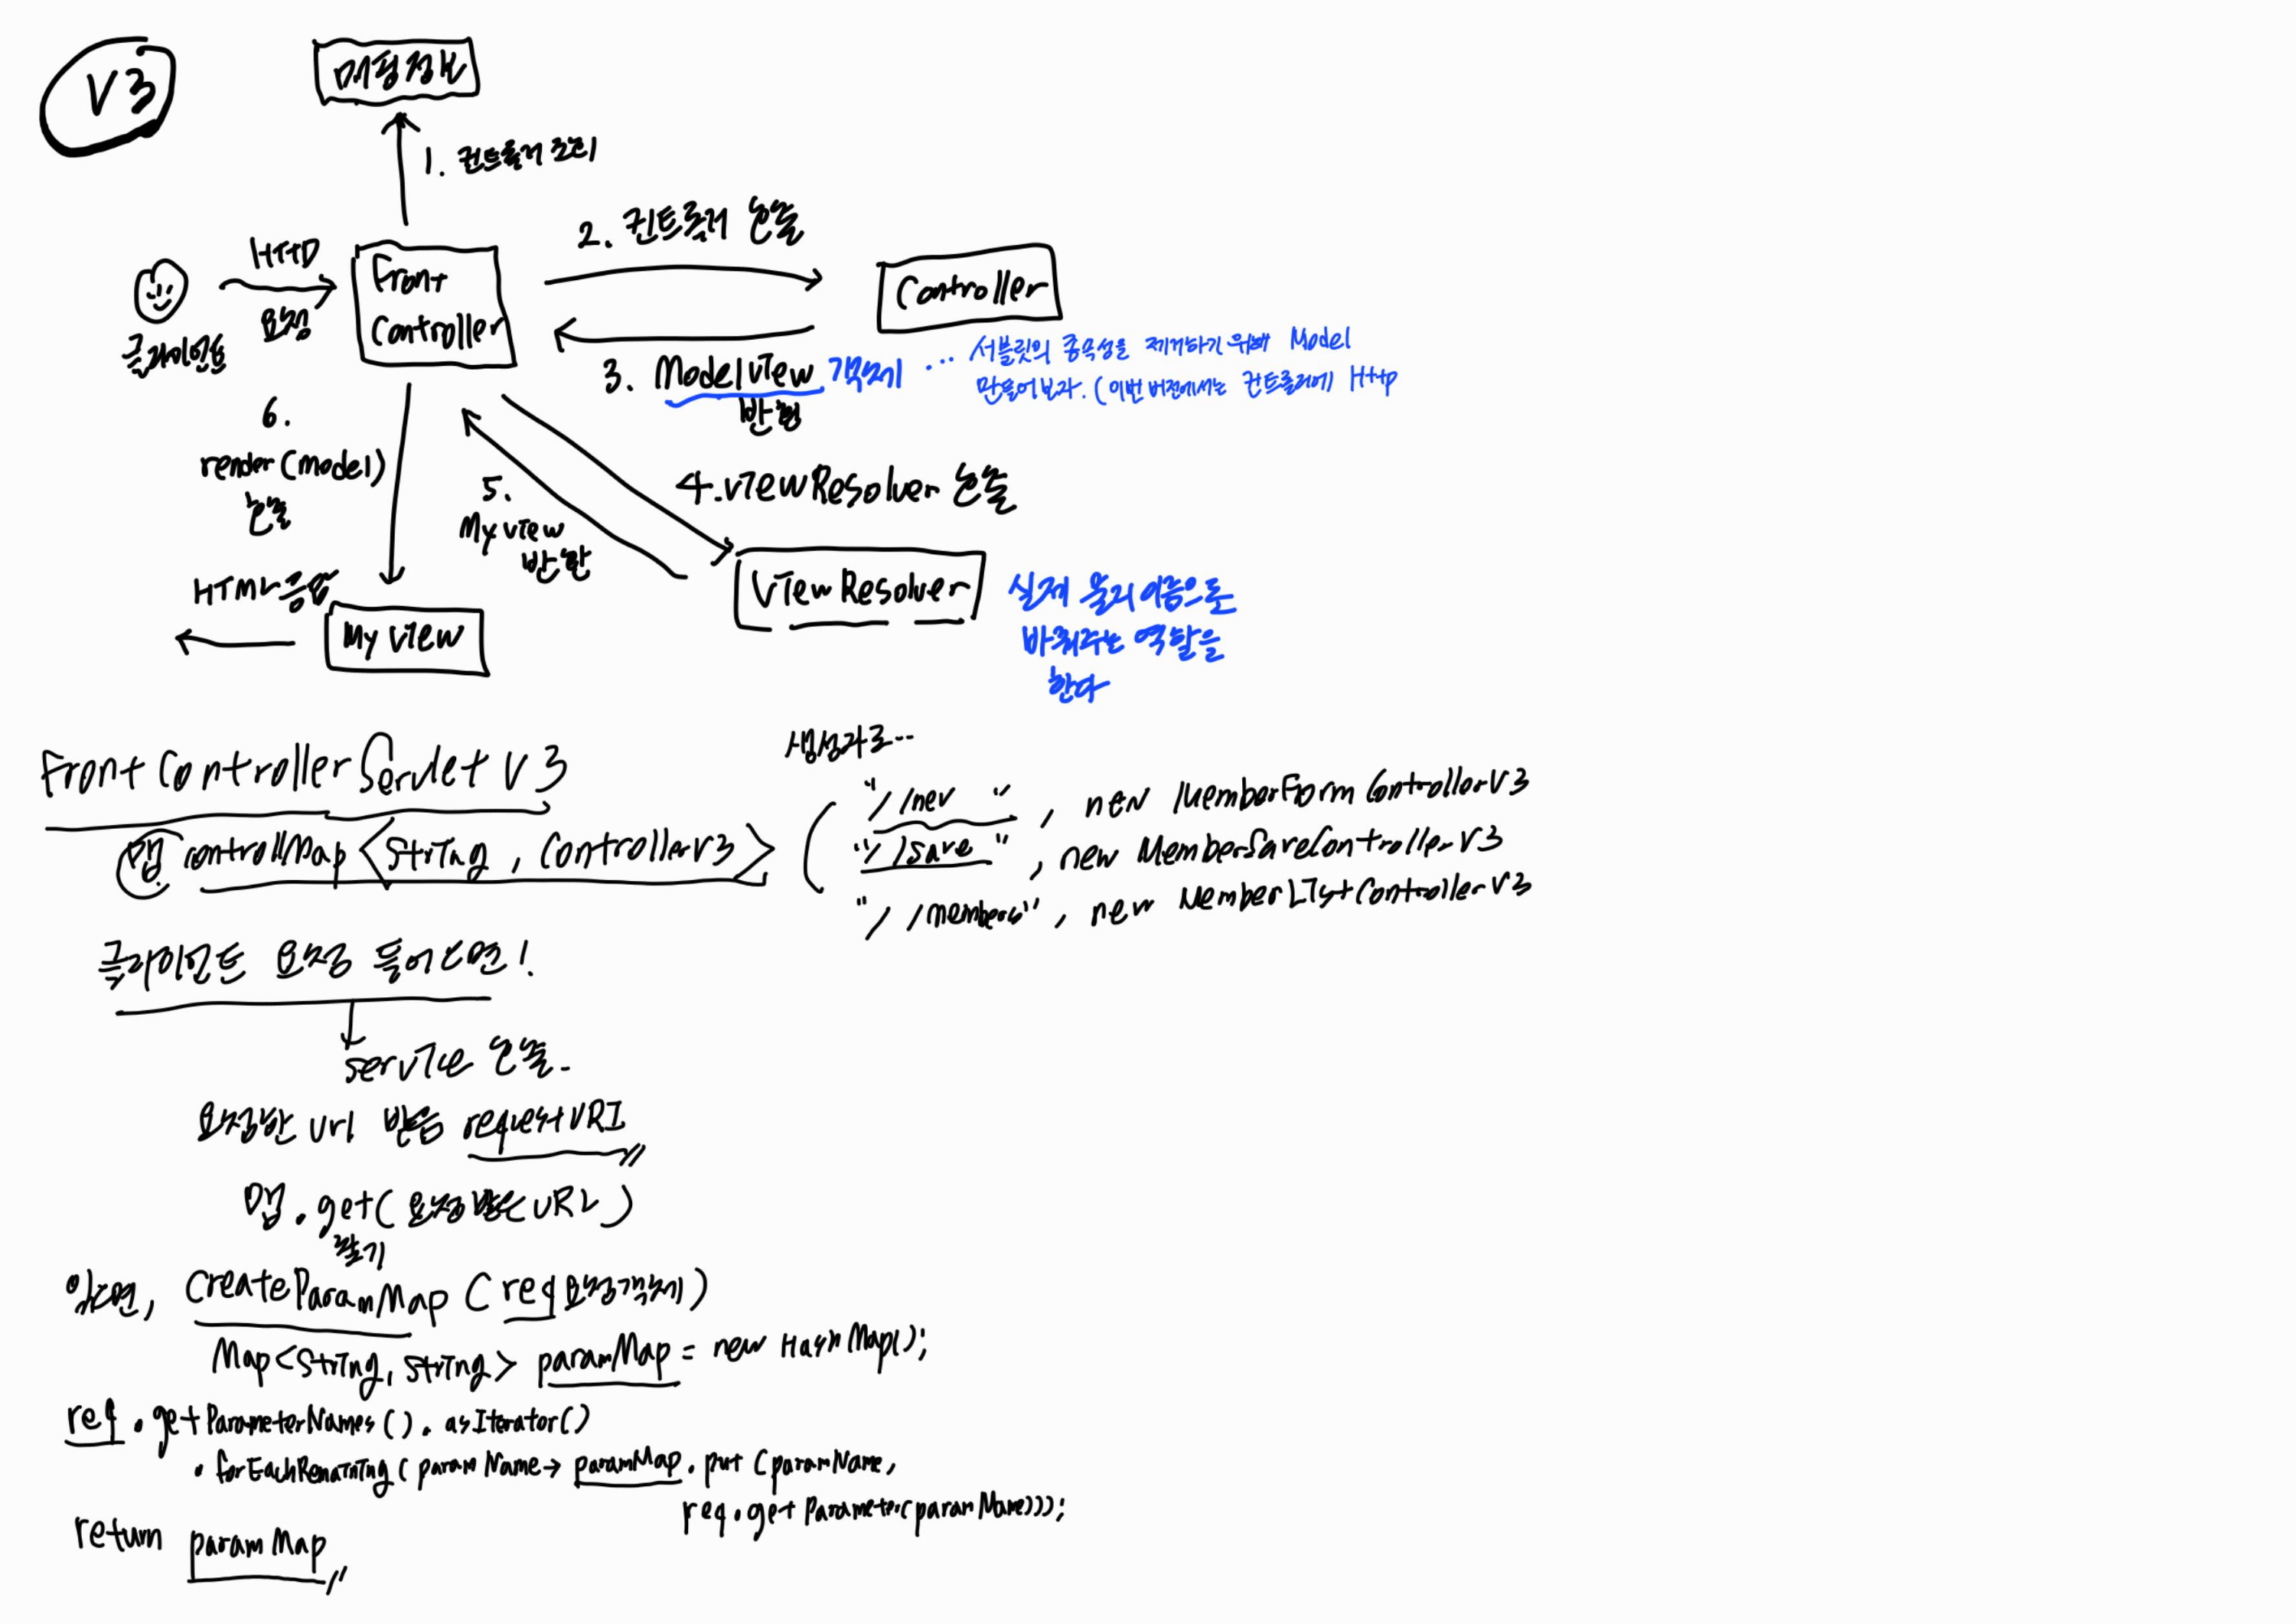 V3
매핑정보
1. 컨트롤러 조회
HTTP
요청
클라이언트
Front
Controller
2. 컨트롤러 호출
Controller
3. ModelView 객체
반환
... 서블릿의 종속성을 제거하기 위해 Model
만들어보자. (이번 버전에서는 컨트롤러에 Http
6.
render(model)
호출
5.
My view
반환
4. viewResolver 호출
ViewResolver
실제 물리 이름으로
바꿔주는 역할을
한다
HTML 응답
My View
FrontControllerServlet V3
생성자로...
맵 controllMap<String, ControllerV3>
( "/ /new ", new MemberFormControllerV3
"/ /save ", new MemberSaveControllerV3
"/ /members", new MemberListControllerV3
클라이언트 요청 들어오면!
service 호출.
요청한 url 받음 requestURI
맵.get(요청받은 URL)
찾기
있으면, CreateParamMap (req요청객체)
Map<String, String> paramMap = new HashMap();
req.getParameterNames().asIterator()
.forEachRemaining(paramName→ paramMap.put(paramName,
req.getParameter(paramName)));
return paramMap